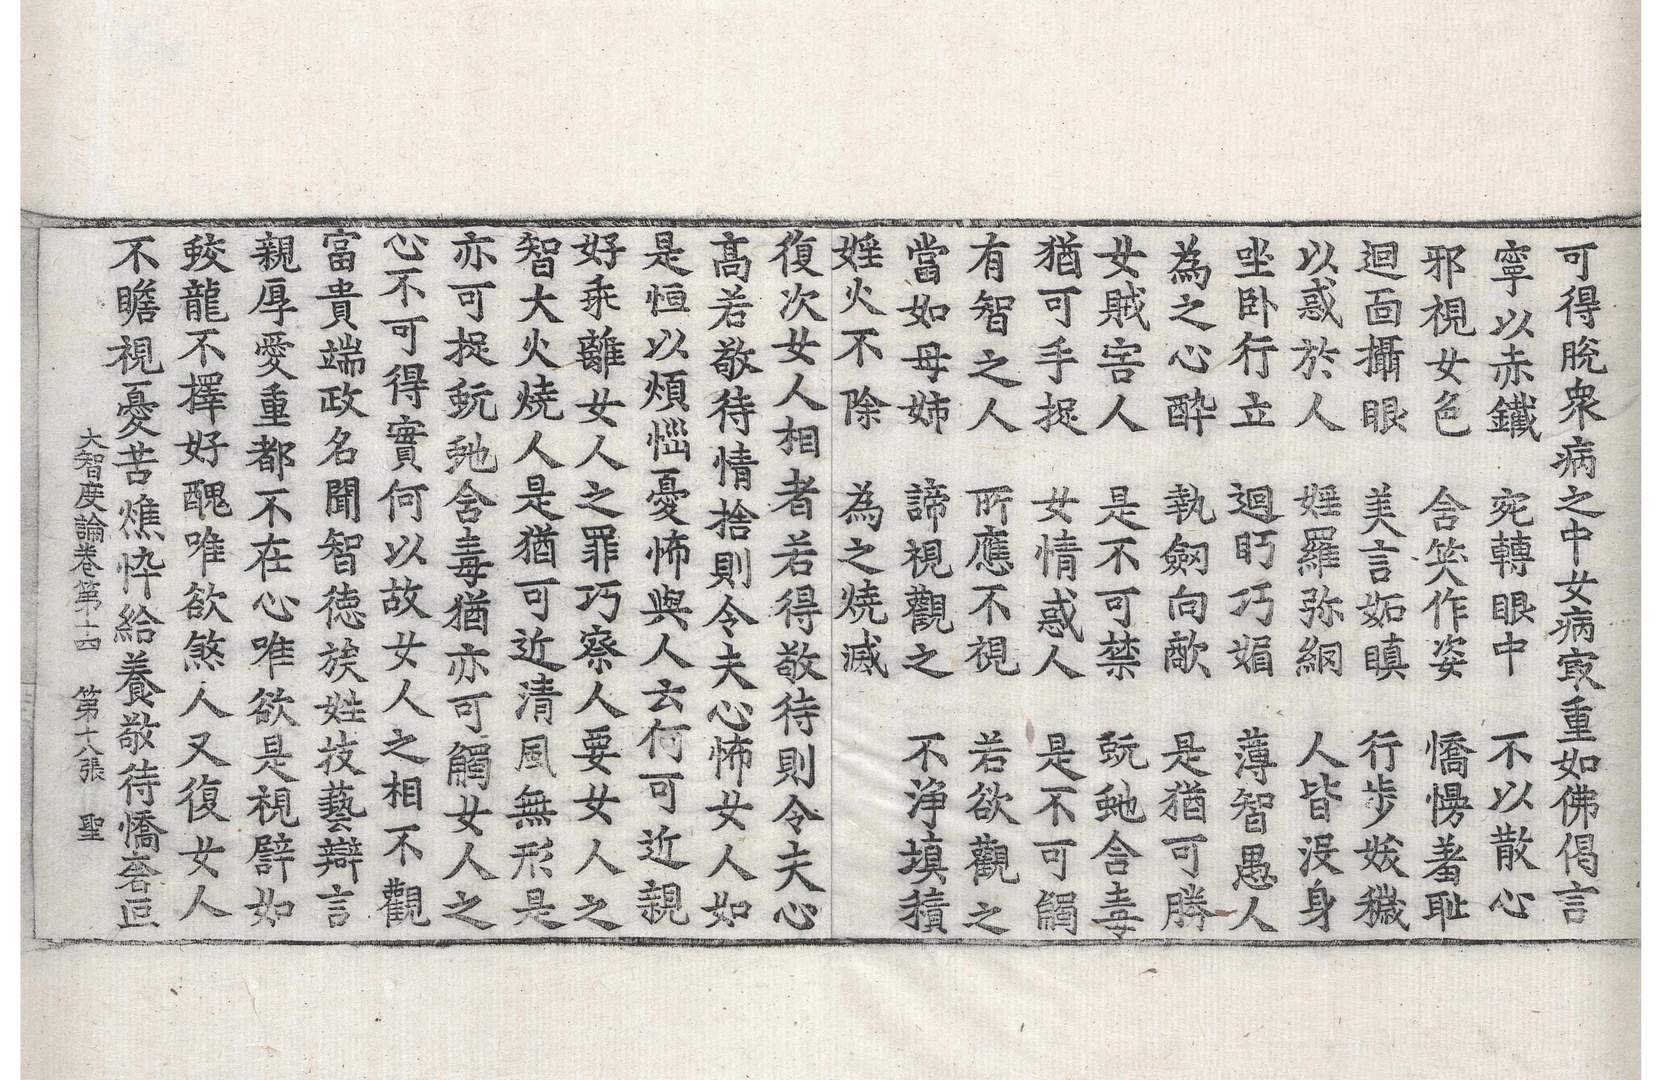 可得脫衆病之中女病㝡重如佛偈言
寧以赤鐵　宛轉眼中　不以散心
邪視女色　含笑作姿　憍慢羞恥
迴面攝眼　美言妬瞋　行步妖穢
以惑於人　婬羅弥網　人皆没身
坐臥行立　迴眄巧媚　薄智愚人
為之心醉　執劒向敵　是猶可勝
女賊害人　是不可禁　蚖虵含毒
猶可手捉　女情惑人　是不可觸
有智之人　所應不視　若欲觀之
當如母姉　諦視觀之　不淨塡積
婬火不除　為之燒滅
復次女人相者若得敬待則令夫心
高若敬待情捨則令夫心怖女人如
是恒以煩惱憂怖與人云何可近親
好乖離女人之罪巧察人要女人之
智大火燒人是猶可近清風無形是
亦可捉蚖虵含毒猶亦可觸女人之
心不可得實何以故女人之相不觀
富貴端政名聞智德族姓技藝辯言
親厚愛重都不在心唯欲是視譬如
蛟龍不擇好醜唯欲煞人又復女人
不瞻視憂苦燋悴給養敬待憍奢叵
大智度論卷第十四　第十八張　聖